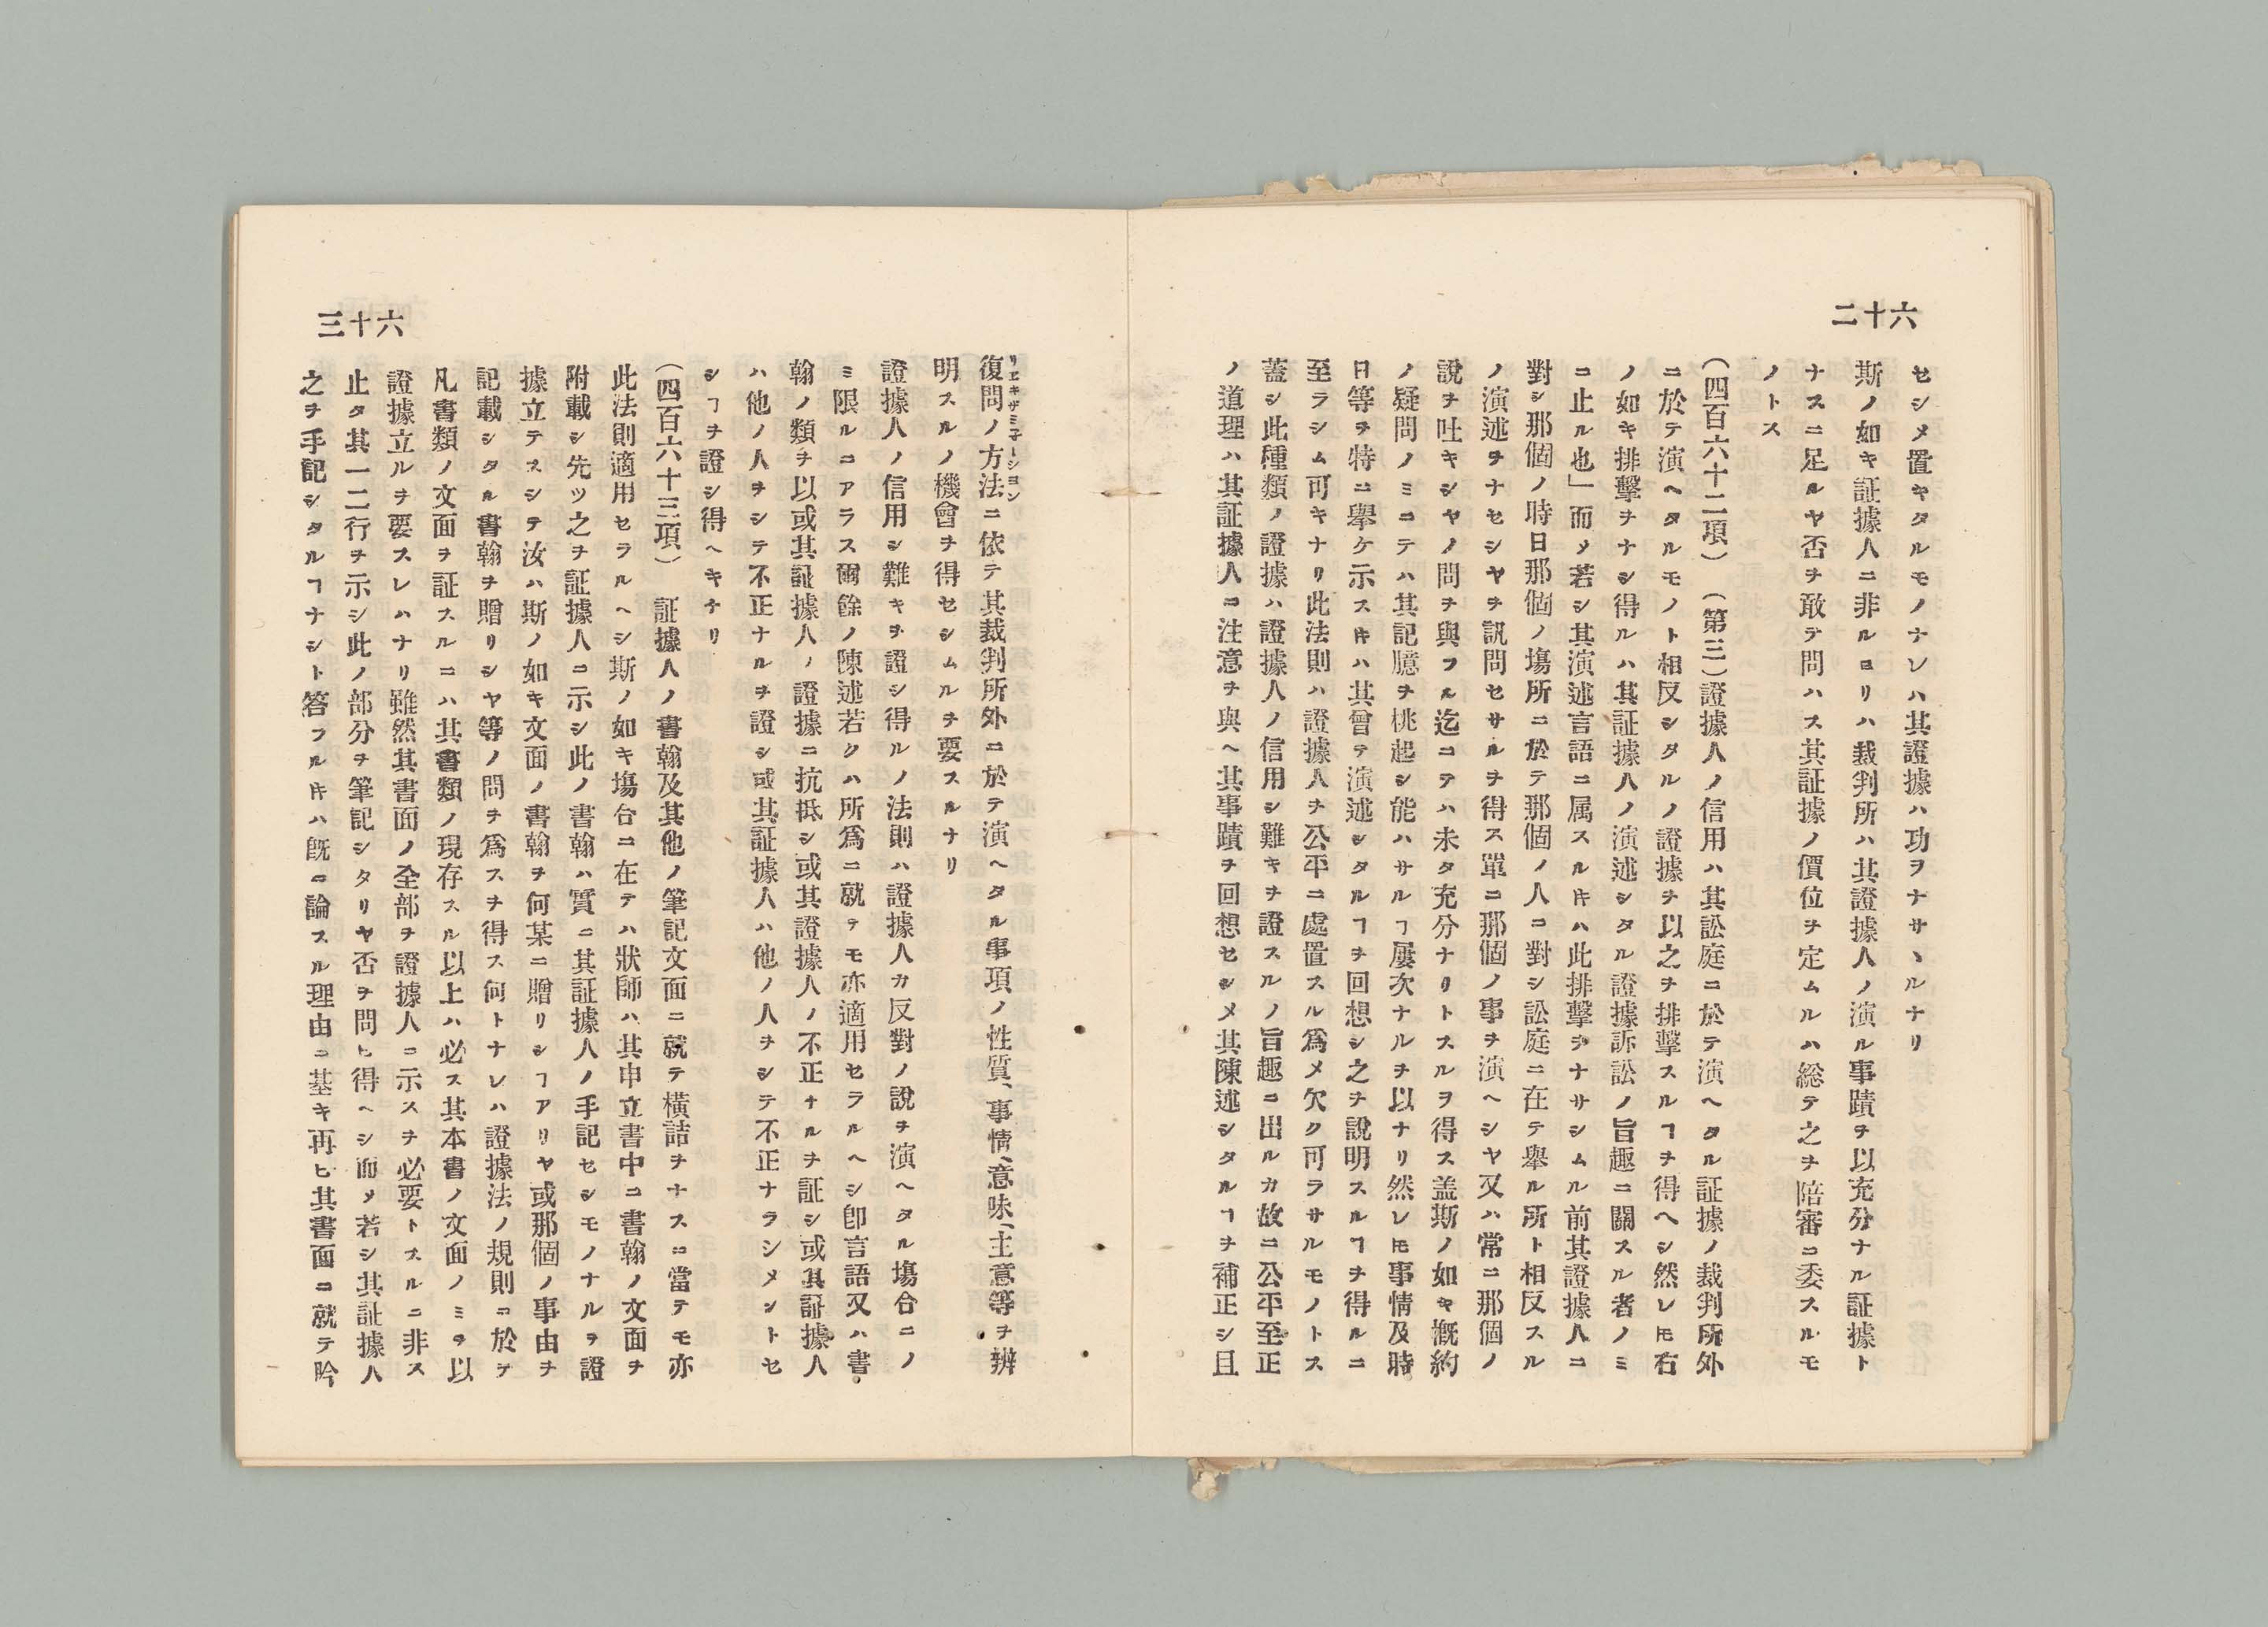 六十二
セシメ置キタルモノナレハ其證據ハ功ヲナサヽルナリ
斯ノ如キ証據人ニ非ルヨリハ裁判所ハ其證據人ノ演ル事蹟ヲ以充分ナル証據ト
ナスニ足ルヤ否ヲ敢テ問ハス其証據ノ價位ヲ定ムルハ総テ之ヲ陪審ニ委スルモ
ノトス
(四百六十二項) (第三)證據人ノ信用ハ其訟庭ニ於テ演ヘタル証據ノ裁判所外
ニ於テ演ヘタルモノト相反シタルノ證據ヲ以之ヲ排擊スルヿヲ得ヘシ然レ𪜈右
ノ如キ排擊ヲナシ得ルハ其証據人ノ演述シタル證據訴訟ノ旨趣ニ關スル者ノミ
ニ止ル也」而〆若シ其演述言語ニ属スル𪜈ハ此排擊ヲナサシムル前其證據人ニ
對シ那個ノ時日那個ノ塲所ニ於テ那個ノ人ニ對シ訟庭ニ在テ舉ル所ト相反スル
ノ演述ヲナセシヤヲ訊問セサルヲ得ス單ニ那個ノ事ヲ演ヘシヤ又ハ常ニ那個ノ
說ヲ吐キシヤノ問ヲ與フル迄ニテハ未タ充分ナリトスルヲ得ス盖斯ノ如キ概約
ノ疑問ノミニテハ其記臆ヲ桃起シ能ハサルヿ屢次ナルヲ以ナリ然レ𪜈事情及時
日等ヲ特ニ舉ケ示ス𪜈ハ其曾テ演述シタルヿヲ回想シ之ヲ說明スルヿヲ得ルニ
至ラシム可キナリ此法則ハ證據人ヲ公平ニ處置スル爲メ欠ク可ラサルモノトス
蓋シ此種類ノ證據ハ證據人ノ信用シ難キヲ證スルノ旨趣ニ出ルカ故ニ公平至正
ノ道理ハ其証據人ニ注意ヲ與ヘ其事蹟ヲ回想セシメ其陳述シタルヿヲ補正シ且
六十三
復問ノ方法ニ依テ其裁判所外ニ於テ演ヘタル事項ノ性質、事情、意味、主意等ヲ辨
明スルノ機會ヲ得セシムルヲ要スルナリ
證據人ノ信用シ難キヲ證シ得ルノ法則ハ證據人カ反對ノ說ヲ演ヘタル塲合ニノ
ミ限ルニアラス爾餘ノ陳述若クハ所爲ニ就テモ亦適用セラルヘシ卽言語又ハ書
翰ノ類ヲ以或其証據人ノ證據ニ抗抵シ或其證據人ノ不正ナルヲ証シ或其証據人
ハ他ノ人ヲシテ不正ナルヲ證シ或其証據人ハ他ノ人ヲシテ不正ナラシメントセ
シヿヲ證シ得ヘキナリ
(四百六十三項) 証據人ノ書翰及其他ノ筆記文面ニ就テ橫詰ヲナスニ當テモ亦
此法則適用セラルヘシ斯ノ如キ塲合ニ在テハ狀師ハ其申立書中ニ書翰ノ文面ヲ
附載シ先ッ之ヲ証據人ニ示シ此ノ書翰ハ實ニ其証據人ノ手記セシモノナルヲ證
據立テスシテ汝ハ斯ノ如キ文面ノ書翰ヲ何某ニ贈リシヿアリヤ或那個ノ事由ヲ
記載シタル書翰ヲ贈リシヤ等ノ問ヲ爲スヲ得ス何トナレハ證據法ノ規則ニ於テ
凡書類ノ文面ヲ証スルニハ其書類ノ現存スル以上ハ必ス其本書ノ文面ノミヲ以
證據立ルヲ要スレハナリ雖然其書面ノ全部ヲ證據人ニ示スヲ必要トスルニ非ス
止タ其一二行ヲ示シ此ノ部分ヲ筆記シタリヤ否ヲ問ヒ得ヘシ而〆若シ其証據人
之ヲ手記シタルヿナシト答フル𪜈ハ旣ニ論スル理由ニ基キ再ヒ其書面ニ就テ吟